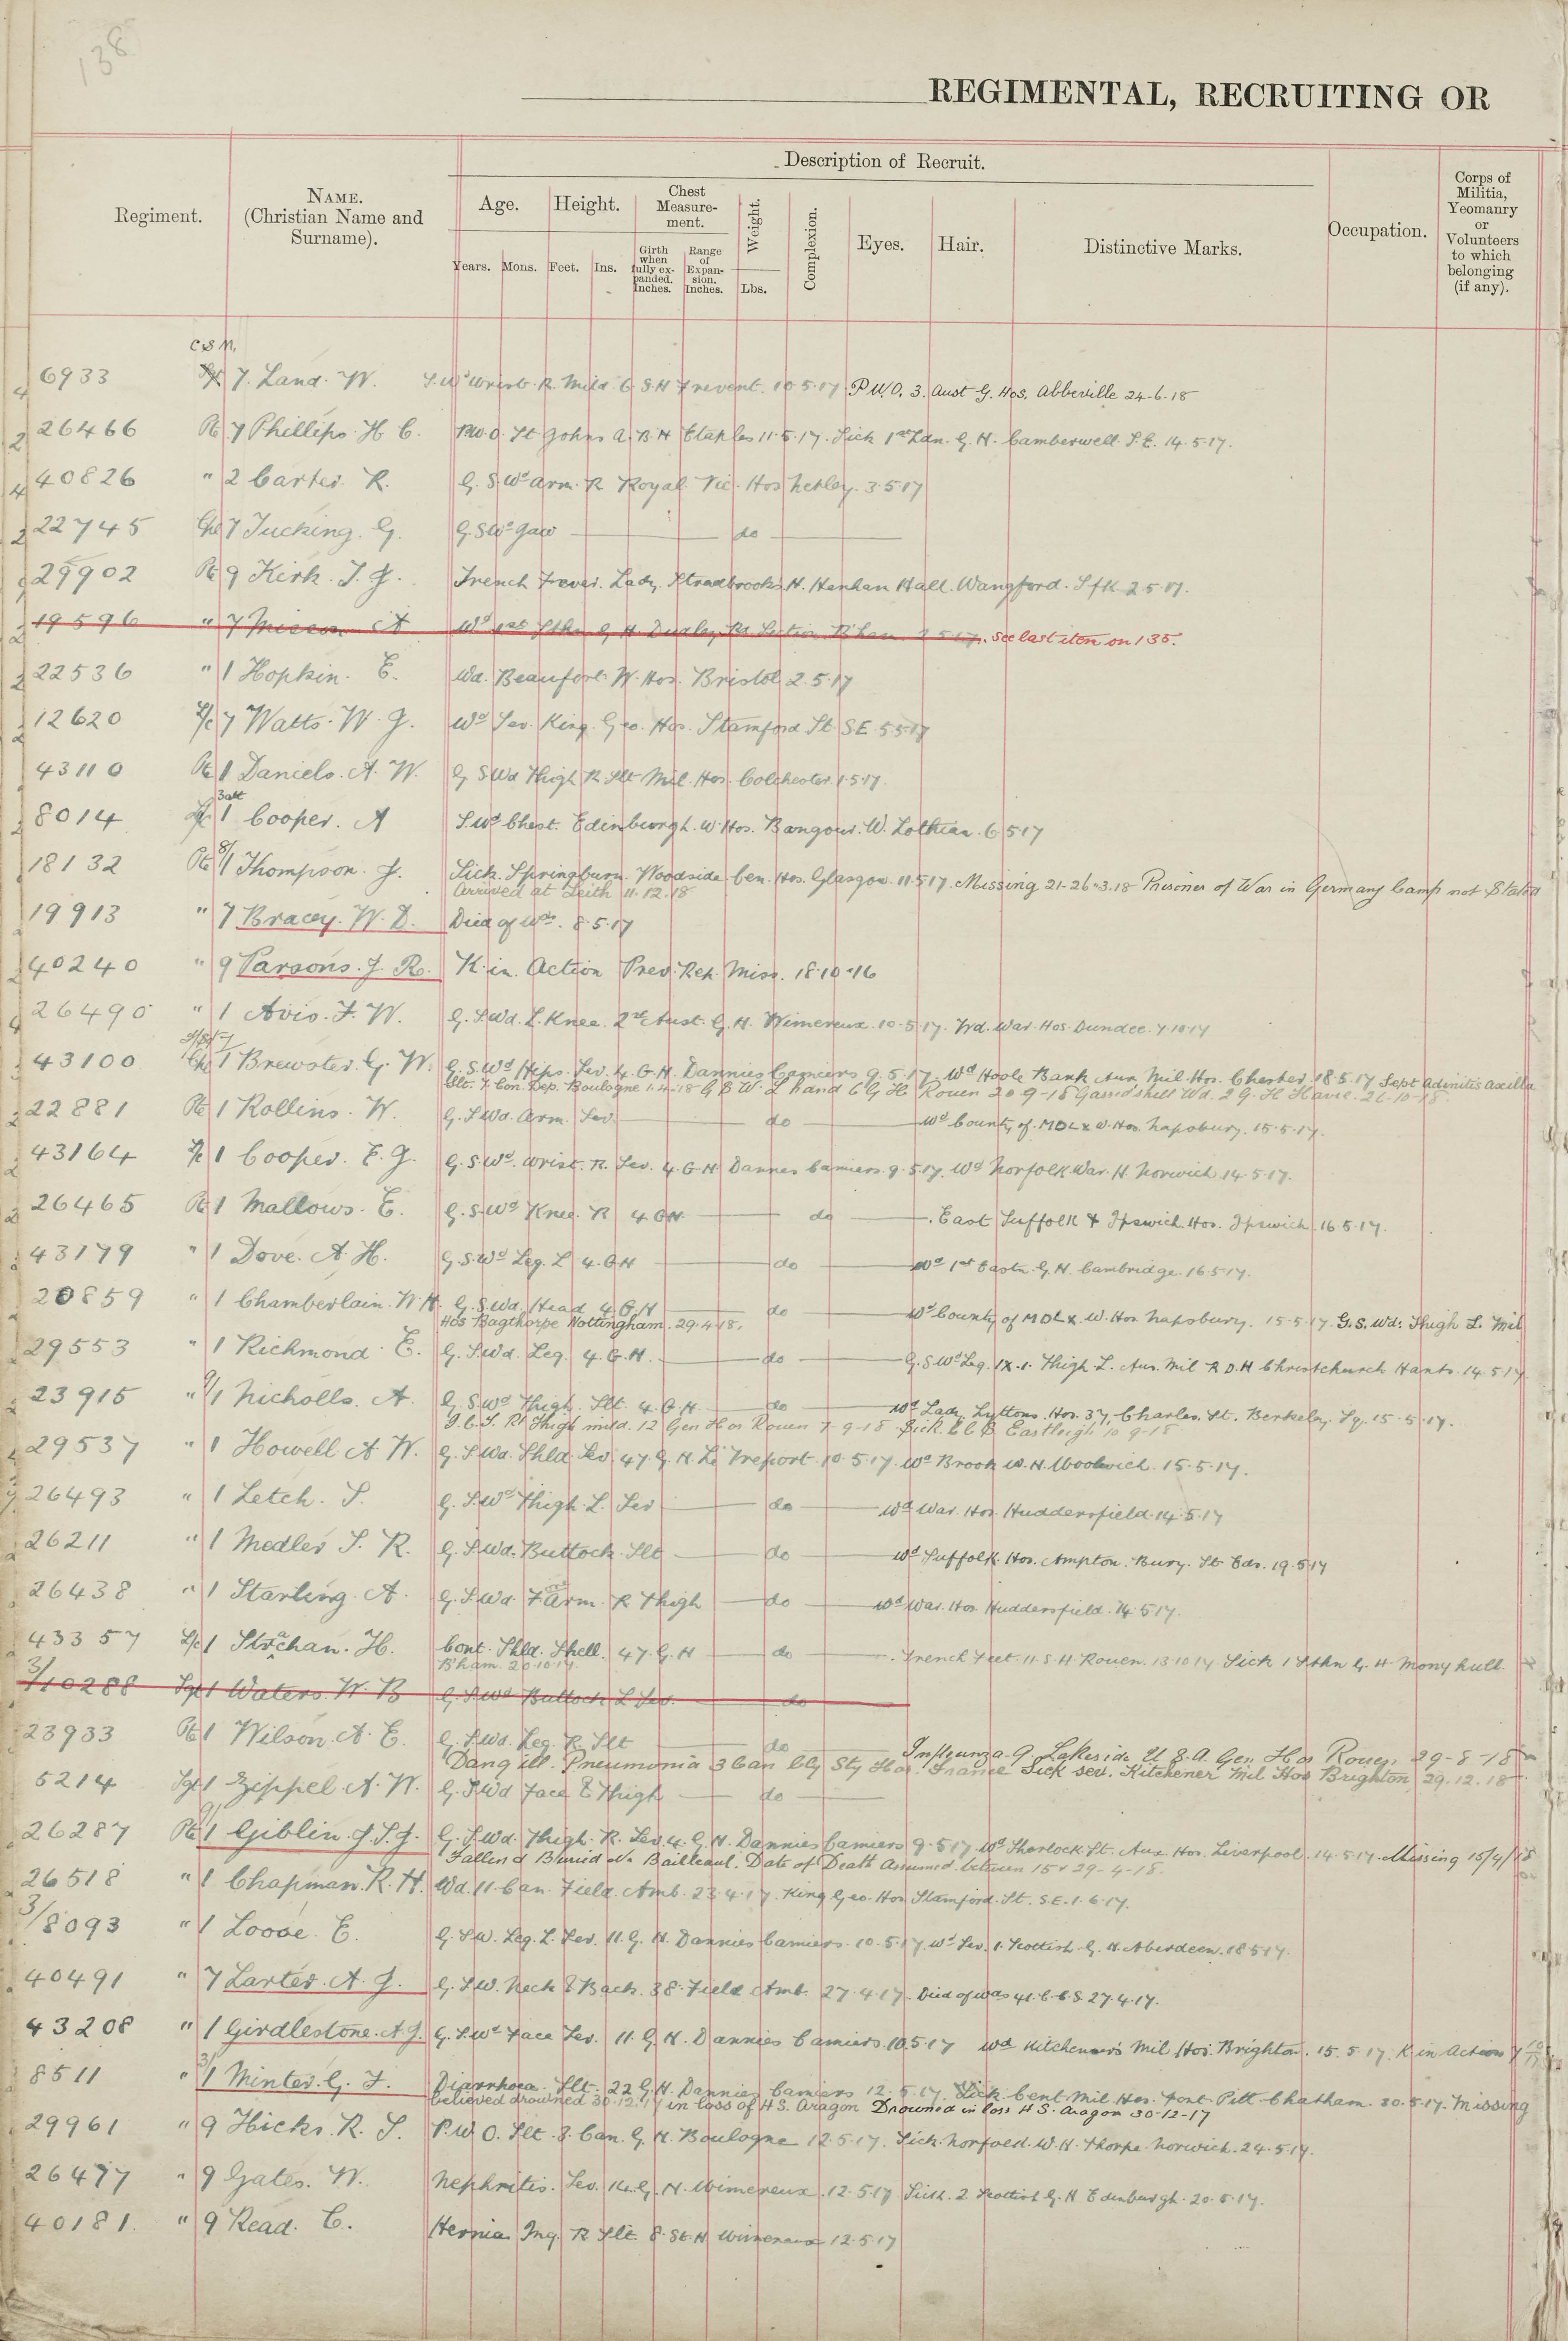 138
REGIMENTAL, RECRUITING OR
Description of Recruit.
Regiment.
NAME.
(Christian Name and
Surname).
Age.
Height.
Chest
Measure-
ment.
Weight.
Complexion.
Eyes.
Hair.
Distinctive Marks.
Occupation.
Corps of
Militia,
Yeomanry
or
Volunteers
to which
belonging
(if any).
Years.
Mons.
Feet.
Ins.
Girth
when
fully ex-
panded.
Inches.
Range
of
Expan-
sion.
Inches.
Lbs.
C S M,
6933 7. Land. W. S. Wd Wrist. R. Mild 6 S.H Treport. 10.5.17. P.U.O. 3. Aust G. Hos. Abbeville 24-6-18
26466 Pte 7 Phillips. H C. P.U.O. St Johns A.B.H Etaples 11.5.17. Sick 1st Ldn. G. H. Camberwell S.E. 14.5.17.
40826 " 2 Carter. R. G. S. Wd Arm. R Royal Vic. Hos Netley. 3.5.17
22745 Cpl 7 Tucking. G. G.S Wd Jaw do
29902 Pte 9 Kirk. T. J. Trench Fever. Lady Stradbrookes H. Henham Hall. Wangford. Sfk 2.5.17.
19596 " 7 A Wd 1st Sthn G H. Dudley Rd Section B'ham 2.5.17. See last item on 135.
22536 " 1 Hopkin. E. Wd. Beaufort W. Hos. Bristol 2.5.17
12620 L/c 7 Watts. W. J. Wd Sev. King Geo. Hos. Stamford St. SE 5.5.17
43110 Pte 1 Daniels. A. W. G S Wd Thigh R Slt Mil. Hos. Colchester. 1.5.17.
3att
8014 1 Cooper. A S. Wd Chest. Edinbeorgh. W. Hos. Bangour. W. Lothian. 6.5.17
18132 Pte 8/1 Thompson. J. Sick. Springburn Woodside Cen. Hos. Glasgow. 11.5.17. Missing 21-26-3.18 Prisoner of War in Germany Camp not Stated
Arrived at Leith 11.12.18
19913 " 7 Bracey. W. D. Died of Wds. 8.5.17
40240 " 9 Parsons. J. R. K. in. Action Prev. Rep. Miss. 18.10.16
26490 " 1 Avis. F. W. G. S. Wd. L. Knee. 2nd Aust. G. H. Wimereux. 10.5.17. Wd. War. Hos. Dundee. 7.10.17
43100 Cpl 1 Brewster. G. W. G. S. Wd Hips. Sev. 4. G.H. Dannies Camiers 9.5.17. Wd Hoole Bank Aux. Mil. Hos. Chester 18.5.17 Sept Adinitis axilla
Slt. 7 Con. Dep. Boulogne 1.4.18 G S W. L hand 6 G H Rouen 20-9-18 Gassed shell Wd. 2 G. H Havre. 26-10-18.
22881 Pte 1 Rollins. W. G. S. Wd. Arm. Sev. do Wd County of MDLX W. Hos. Napsbury. 15.5.17.
43164 L/c 1 Cooper. E. J. G. S. Wd. wrist. R. Sev. 4. G.H Dannes Camiers. 9.5.17. Wd Norfolk War. H. Norwich 14.5.17.
26465 Pte 1 Mallows. E. G. S. Wd Knee. R 4 GH do East Suffolk & Ipswich Hos. Ipswich 16.5.17.
43179 " 1 Dove. A. H. G. S. Wd Leg. L 4. G H do Wd 1st Eastn. G. H. Cambridge. 16.5.17.
20859 " 1 Chamberlain. W. H. G. S. Wd. Head 4. G. H do Wd County of MDLX. W. Hos. Napsbury. 15.5.17. G. S. Wd. Thigh L. Mil
Hos Bagthorpe Nottingham. 29.4.18.
29553 " 1 Richmond. E. G. S. Wd. Leg. 4. G. H. do G. S Wd Leg. 1X.1. Thigh L. Aux. Mil R.D.H Christchurch Hants. 14.5.17
23915 " 9/1 Nicholls. A. G. S. Wd Thigh. Slt. 4. G.H do Wd Lady Lyttons Hos. 37, Charles. St. Berkely. Sq. 15.5.17.
I.C.T. Rt Thigh mild. 12 Gen Hos Rouen 7-9-18 Sick. C C D Eastleigh 10 9-18
29537 " 1 Howell A W. G. S. Wd. Shld. Sev. 47. G. H Le Treport 10.5.17. Wd Brook W. H. Woolwich. 15.5.17.
26493 " 1 Letch. S. G. S. Wd Thigh. L. Sev do Wd War. Hos. Huddersfield. 14.5.17
26211 " 1 Medler S. R. G. S. Wd. Buttock. Slt do Wd Suffolk. Hos. Ampton. Bury. St Eds. 19.5.17
26438 " 1 Starling. A. G. S. Wd. F Arm. R Thigh do Wd War. Hos. Huddersfield. 14.5.17.
43357 L/c 1 Strachan. H. Cont. Shld. Shell. 47. G. H do Trench Feet 11. S. H Rouen. 13.10.17 Sick 1 Sthn G. H Mony hull.
B'ham. 20.10.17.
3/10288 Sgt 1 Waters. W. B G. S. Wd Buttock L Sev. do
23933 Pte 1 Wilson. A. E. G. S. Wd. Leg. R. Slt do Influenza 9. Lakeside U.S.A. Gen. Hos Rouen 29-8-18
Dang ill. Pneumonia 3 Can Cly Sty Hos. France Sick sev. Kitchener Mil Hos Brighton 29.12.18
5214 Sgt 1 Zippel A. W. G. S. Wd Face & Thigh do
26287 Pte 9/1 Giblin. J. S. J. G. S. Wd. Thigh. R. Sev. 4. G. H. Dannies Camiers 9.5.17. Wd Sherlock St. Aux. Hos. Liverpool. 14.5.17. Missing 15/4/18
Fallen & Buried Nr Bailleaul. Date of Death assumed between 15 & 29-4-18.
26518 " 1 Chapman. R. H. Wd. 11. Can. Field. Amb. 23.4.17. King Geo. Hos Stamford. St. S.E. 1.6.17.
3/8093 " 1 Loose. E. G. S. W. Leg. L. Sev. 11. G. H. Dannies Camiers. 10.5.17 Wd Sev. 1. Scottish. G. H. Aberdeen. 18.5.17.
40491 " 7 Larter. A. J. G. S. W. Neck & Back. 38. Field Amb. 27.4.17. Died of Wds 41. C.C.S. 27.4.17.
43208 " 1 Girdlestone. A. J. G. S. Wd Face Sev. 11. G. H. Dannies Camiers. 10.5.17 Wd Kitchener's Mil Hos. Brighton. 15.5.17. K in Action
8511 " 3/1 Minter. G. F. Diarrhoea. Slt. 22 G. H. Dannies Camiers 12.5.17. Sick Cent. Mil. Hos. Font Pitt. Chatham. 20.5.17. Missing
believed drowned 30.12.17 in loss of H S. Aragon Drowned in loss H S. Aragon 30-12-17
29961 " 9 Hicks. R. S. P. U O. Slt. 3. Can. G. H. Boulogne 12.5.17. Sick. Norfolk. W. H. Thorpe Norwich. 24.5.17.
26477 " 9 Gates. W. Nephritis. Sev. 14. G. H. Wimereux. 12.5.17 Sick. 2 Scottish G. H Edinburgh. 20.5.17.
40181. " 9 Read. C. Hernia Ing. R Slt. 8. St. H Wimereux 12.5.17